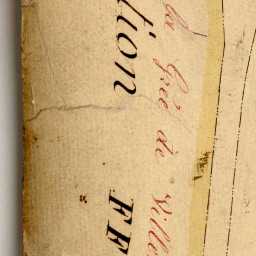 la Grée de Ville
tion FE